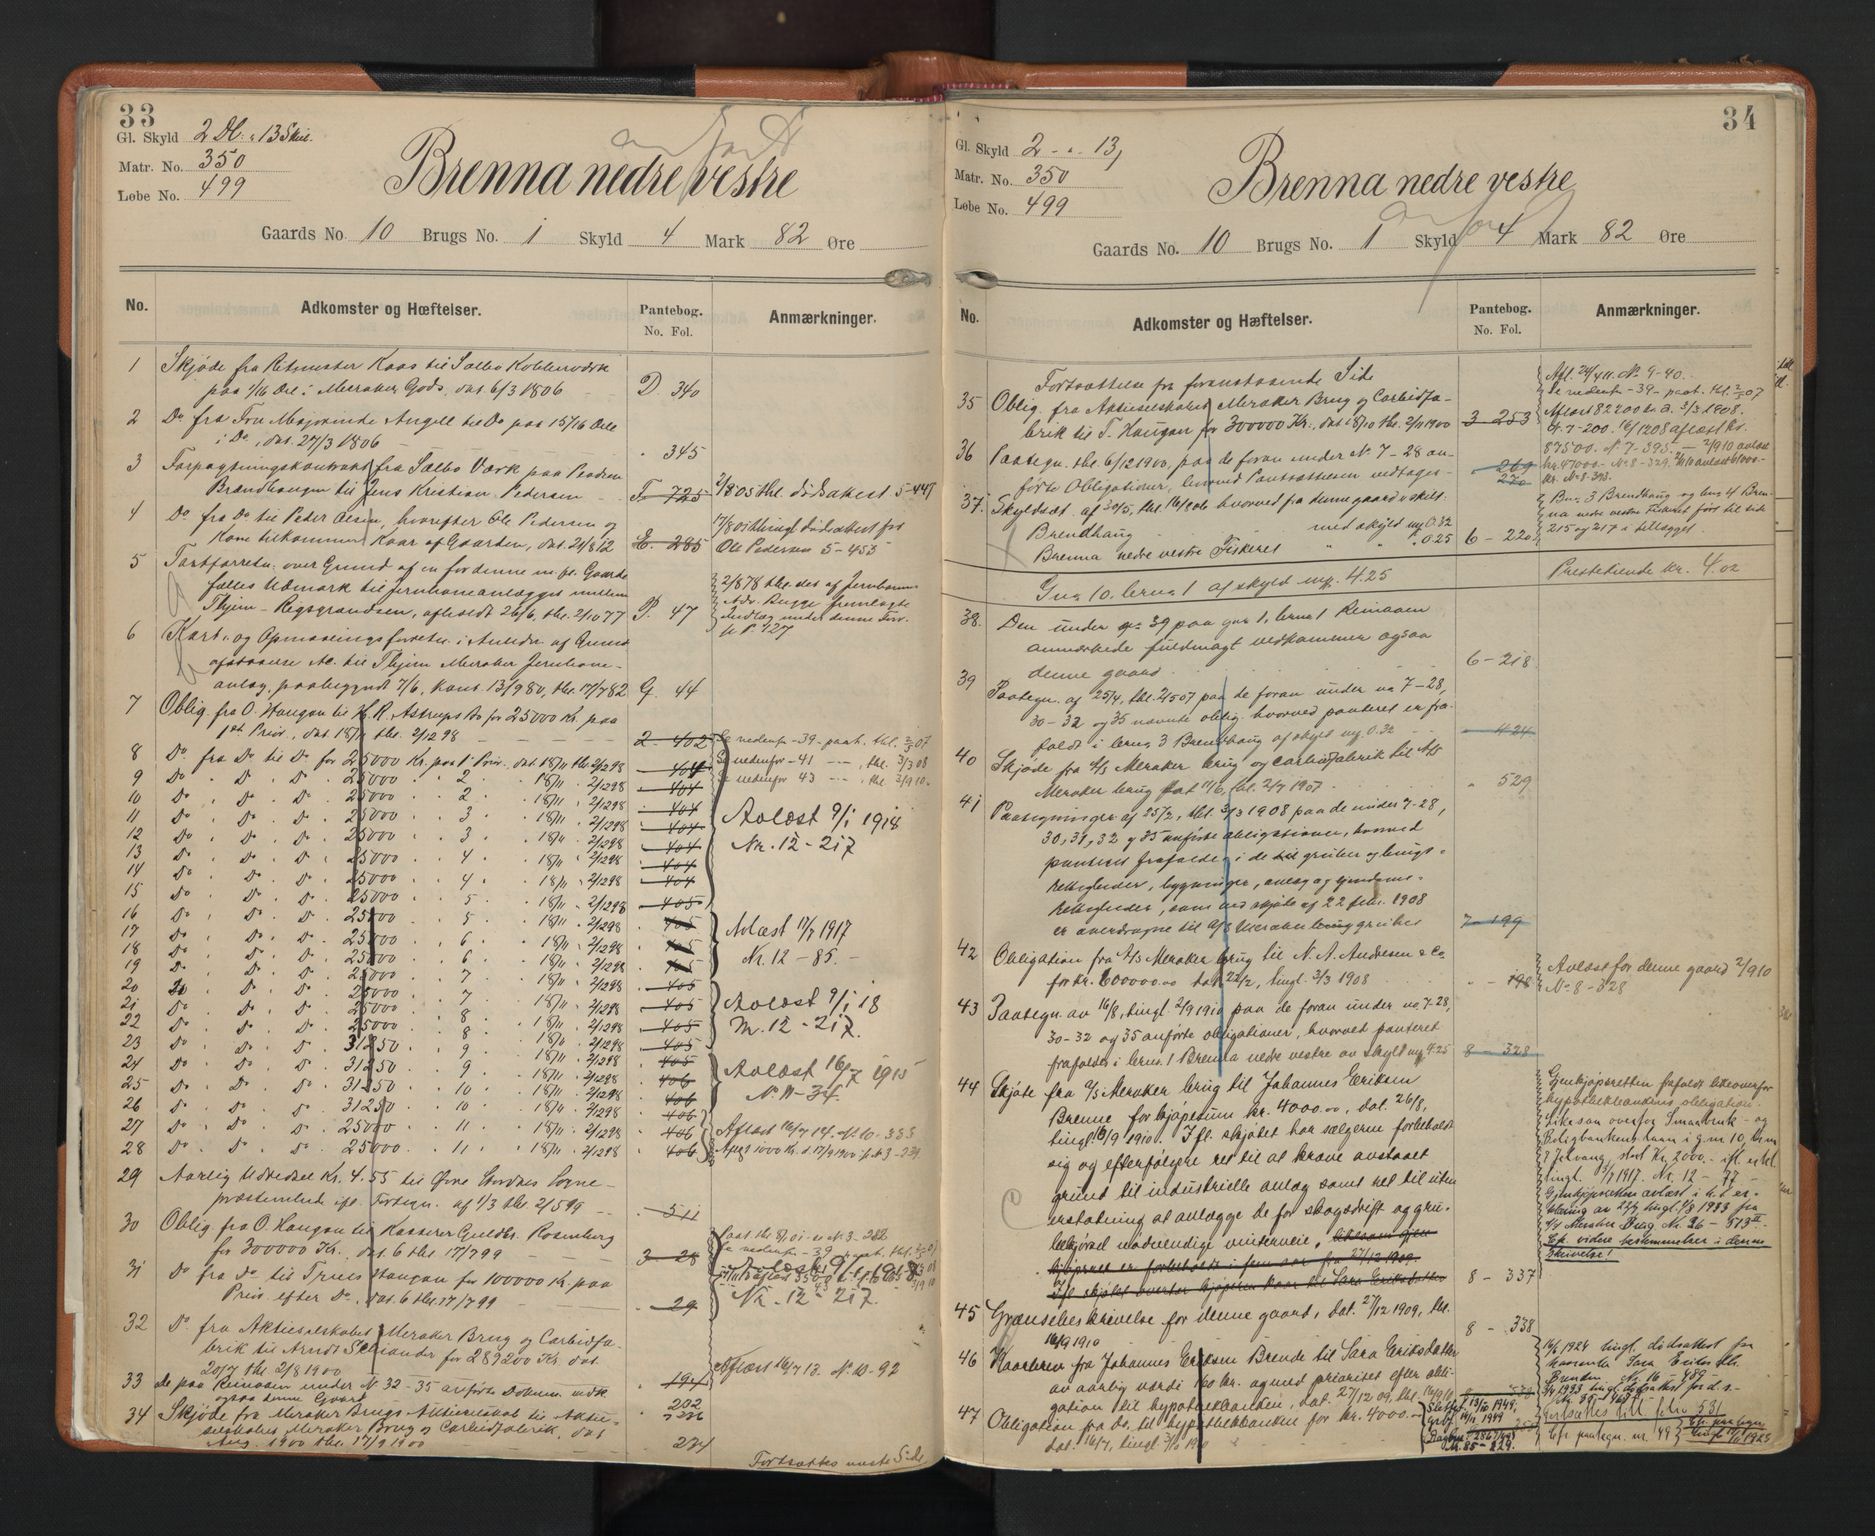 33
Gl. Skyld 2 Dl. " 13 Skil.
Matr. No. 350
Løbe No. 499
Brenna nedre vestre
Gaards No. 10 Brugs No. 1 Skyld 4 Mark 82 Øre
No. Adkomster og Hœftelser. Pantebog. No. Fol. Anmærkninger.
1 Skjøde fra Ritmester Kaas til Selbo Kobberværk
paa 1/16 Del i Meraker Gods, dat. 6/3 1806 D. 340
2 Do fra Fru Majorinde Angell til Do paa 15/16 Dele
i Do, dat. 27/3 1806 " 345
3 Forpagtningskontrakt fra Selbo Værk paa Pladsen
Brændhaugen til Jens Kristian Pedersen F 725
2/8 05 thl. dødsattest 5-447
4 Do fra Do til Peder Olsen, hvorefter Ole Pedersen og
Kone tilkommer Kaar af Gaarden, dat. 21/8 12 E. 285
17/8 05 thingl. dødsattest for
Ole Pedersen 5-453
5 Tartforretn. over Grund af en for denne m. fl. Gaarde
fælles Udmark til Jernbaneanlægget mellem
Thjem - Rigsgrændsen, afholdt 26/6 thl. 2/10 77 P. 47
2/8 78 thl. det af Jernbane-
Adv. Bugge fremlagte
Indlæg under denne Forr.
P. 127
6 Kart- og Opmaalingsforretn. i Anledn. af Grund
afstaaelse &c. til Thjem Meraker Jernbane-
anlæg, paabegyndt 7/6, kons. 13/9 80, thl. 17/7 82 G. 44
7 Oblig. fra O. Haugan til H. R. Astrup do for 25000 Kr. paa
1st Prior., dat. 18/11 thl. 2/12 98 2 - 402
Se nedenfr - 39 - paat. thl. 2/5 07
8 Do fra Do til Do for 25000 Kr. paa 1 Prior. dat. 18/11 thl. 2/12 98 404
Se nedenfor - 41 - , thl. 3/3 08
9 Do " Do " Do " 25000 " 2 " 18/11 " 2/12 98 404
Se nedenfor 43 - , thl. 2/9 10
10 Do " Do " Do " 25000 " 2 " 18/11 " 2/12 98 404
11 Do " Do " Do " 25000 " 3 " 18/11 " 2/12 98 404
Avlæst 9/1 1918
12 Do " Do " Do " 25000 " 3 " 18/11 " 2/12 98 404
Nr. 12 - 217
13 Do " Do " Do " 25000 " 4 " 18/11 " 2/12 98 404
14 Do " Do " Do " 25000 " 4 " 18/11 " 2/12 98 404
15 Do " Do " Do " 25000 " 5 " 18/11 " 2/12 98 405
16 Do " Do " Do " 25000 " 5 " 18/11 " 2/12 98 405
Avlæst 17/7 1917
17 Do " Do " Do " 25000 " 6 " 18/11 " 2/12 98 405
Nr. 12 - 85. -
18 Do " Do " Do " 25000 " 6 " 18/11 " 2/12 98 405
19 Do " Do " Do " 25000 " 7 " 18/11 " 2/12 98 405
20 Do " Do " Do " 25000 " 7 " 18/11 " 2/12 98 405
Avlæst 9/1 18
21 Do " Do " Do " 25000 " 8 " 18/11 " 2/12 98 405
Nr. 12 - 217.
22 Do " Do " Do " 25000 " 8 " 18/11 " 2/12 98 405
23 Do " Do " Do " 31250 " 9 " 18/11 " 2/12 98 405
24 Do " Do " Do " 31250 " 9 " 18/11 " 2/12 98 406
Avlæst 16/7 1915
25 Do " Do " Do " 31250 " 10 " 18/11 " 2/12 98 406
N. 11 - 34.
26 Do " Do " Do " 31250 " 10 " 18/11 " 2/12 98 406
27 Do " Do " Do " 25000 " 11 " 18/11 " 2/12 98 406
Aflæst 16/7 14. N. 10 - 333
28 Do " Do " Do " 25000 " 11 " 18/11 " 2/12 98 406
29 Aarlig Udredsel Kr. 4.55 til Øvre Stordals Sogne-
præstembede ifl. Fortegn. af 1/3 thl. 2/5 99 " 511
30 Oblig. fra O. Haugan til Kasserer Guldbr. Rosenberg
for 300000 Kr., dat. 6 thl. 17/7 99 3 - 28
Se nedenfr - 39 - paat. thl. 2/5 07
31 Do fra Do til Trues Haugan for 100000 Kr. paa
Prior. efter Do, dat. 6 thl. 17/7 99 " 29
Avlæst 9/1 1918
Nr. 12 - 217.
32 Do fra Aktieselskabet Meraker Brug og Carbidfa-
brik til Arndt Scriander for 289200 Kr. dat.
20/7 thl. 2/8 1900 194
Aflæst 16/7 13. N. 10 - 92
33 de paa Reinaasen under N 32-35 anførte Dokum. vedk.
ogsaa denne Gaard 202
34 Skjøde fra Meraker Brugs Aktieselskab til Aktie-
selskabet Meraker Brug og Carbidfabrik, dat.
Aug. 1900 thl. 17/9 1900 234
Fortsættes næste Side
34
Gl. Skyld 2 - " 13,
Matr. No. 350
Løbe No. 499
Brenna nedre vestre
Gaards No. 10 Brugs No. 1 Skyld 4 Mark 82 Øre
No. Adkomster og Hæftelser. Pantebog. No. Fol. Anmærkninger.
Fortsættelse fra foranstaaende Side
35 Oblig. fra Aktieselskabet Meraker Brug og Carbidfa-
brik til T. Haugan for 300000 Kr., dat. 18/10 thl. 2/11 1900 3 - 253
Afl. 24/4 11. N. 9 - 40.
Se nedenfr - 39 - paat. thl. 2/5 07
Afløst 82200 kr. d. 3/3 1908.
N. 7 - 200. 16/12 08 aflæst kr.
87500. N. 7 - 395. - 2/9 10 avlæst
kr. 47000. - No 8 - 329.
kr. No 8 - 393.
36 Paategn. thl. 6/12 1900, paa de foran under No 7-28 an-
førte Obligationer, hvorved Pantsættelsen vedtages - 269
270
37. Skyldsæt. af 30/5, thl. 16/6 06 hvorved fra denne gaard er skilt:
Brendhaug med skyld mk. 0.32
Brenna nedre vestre Fiskeret " " " 0.25 6 - 220
Bno 3 Brendhaug og bno 4 Bren-
na nedre vestre Fiskeret ført til side
215 og 217 i tillægget.
Gno 10, brno 1 af skyld mk. 4.25
Prestetiende kr. 4.02
38. Den under No 39 paa gno 1, brno 1 Reinaasen
anmærkede fuldmagt vedkommer ogsaa
denne gaard 6 - 218
39 Paategn. af 25/4, thl. 2/5 07 paa de foran under no 7-28,
30-32 og 35 nævnte oblig. hvorved panteret er fra-
faldt i brno 3 Brendhaug af skyld mk. 0.32 " 424
40 Skjøde fra A/S Meraker brug og carbidfabrik til A/S
Meraker brug dat 11/6, thl. 2/7 1907 " 529
41 Paategninger af 25/2, thl. 3/3 1908 paa de under 7-28,
30, 31, 32 og 35 anførte obligationer, hvorved
panteret frafaldes i de til gruber og brugs-
rettigheder, bygninger, anlæg og eiendoms-
rettigheder, som ved skjøte af 22 febr. 1908
er overdragne til A/S Meraker gruber 7 - 199
42 Obligation fra A/S Meraker brug til N. A. Andresen & Co.
for kr. 600000.00 dat. 22/2, tingl. 3/3 1908 " - 198
Avlæst for denne gaard 2/9 10
No 8 - 328
43 Paategn. av 16/8, tingl. 2/9 1910 paa de foran under no 7-28,
30-32 og 35 anførte obligationer, hvorved panteret
frafaldes i brno 1 Brenna nedre vestre av skyld mk 4.25 8 - 328
44 Skjøte fra A/S Meraker brug til Johannes Eriksen
Brenne for kjøpesum kr. 4000.00, dat. 26/8,
tingl. 16/9 1910. Ifl. skjøtet har sælgeren forbeholdt
sig og efterfølgere ret til at kræve avstaaet
grund til industrielle anlæg samt ret til uten
erstatning at anlægge de for skogsdrift og gru-
bekjørsel nødvendige vinterveie, likesom gjen-
kjøpsret er forbeholdt i fem aar fra 27/12 1909.
Ifl. skjøtet overtar kjøperen kaar til Sara Eriksdatter 8 - 337
Gjenkjøpsretten frafaldt likeoverfor
hypotekbankens obligation.
Likesaa overfor Smaabruk- og
Boligbankens laan i g.nr 10, br.nr
7 Jekvang, stort kr. 2000. -
tingl. 5/7 1917. Nr. 12 - 77 -
Gjenkjøpsretten avlæst i h.t. er-
klæring av 24/7 tingl. 1/8 1933 fra
A/S Meraker Brug. Nr. 26 - 573 II.
Cfr. videre bestemmelser i denne
skrivelse!
45 Grænsebeskrivelse for denne gaard, dat. 27/12 1909, thl.
16/9 1910 8 - 338
46 Kaarbrev fra Johannes Eriksen Brende til Sara Eriksdatter
av aarlig værdi 160 kr. og med prioritet efter obli-
gation til hypotekbanken, dat. 27/12 09, thl. 16/9 10 8 - 339
16/6 1924 tingl. dødsattest for
kaarenke Sara Eriksdtr.
Brenden. Nr. 16 - 389 -
47 Obligation fra do. til hypotekbanken for kr. 4000. -
dat. 16/7, tingl. 3/10 1910
Slettet 13/10 1949,
Dagbnr. 2567/1949
M. 85 - 229.
Fortsættes till folio 531
Cfr. paategn. nr. 49